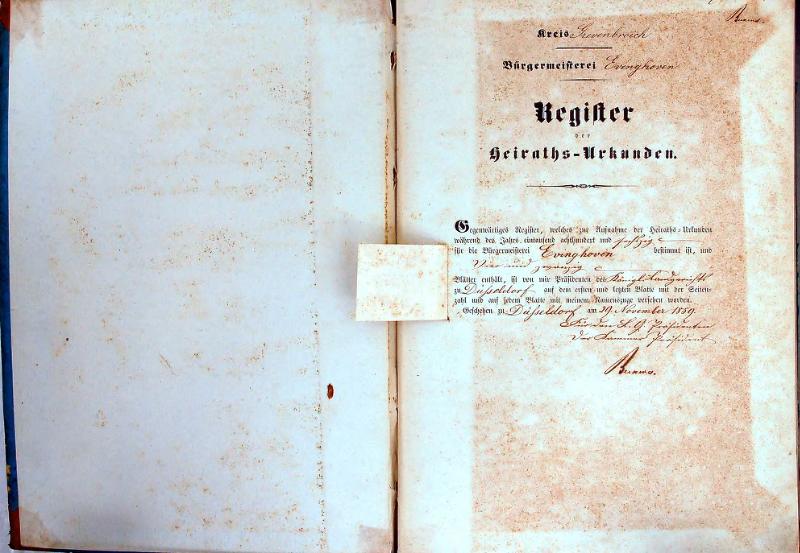 Kreis Grevenbroich
Bürgermeisterei Evinghoven
Register
der
Heiraths-Urkunden.
Gegenwärtiges Register, welches zur Aufnahme der Heiraths-Urkunden
während des Jahres eintausend achthundert und sechzig
für die Bürgermeisterei Evinghoven bestimmt ist, und
Vier und zwanzig
Blätter enthält, ist von mir Präsidenten des Königl. Landgerichts
zu Düsseldorf auf dem ersten und letzten Blatte mit der Seiten-
zahl und auf jedem Blatte mit meinem Namenszuge versehen worden.
Geschehen zu Düsseldorf am 29. November 1859.
Für den L. G. Präsidenten
Der Kammer Präsident